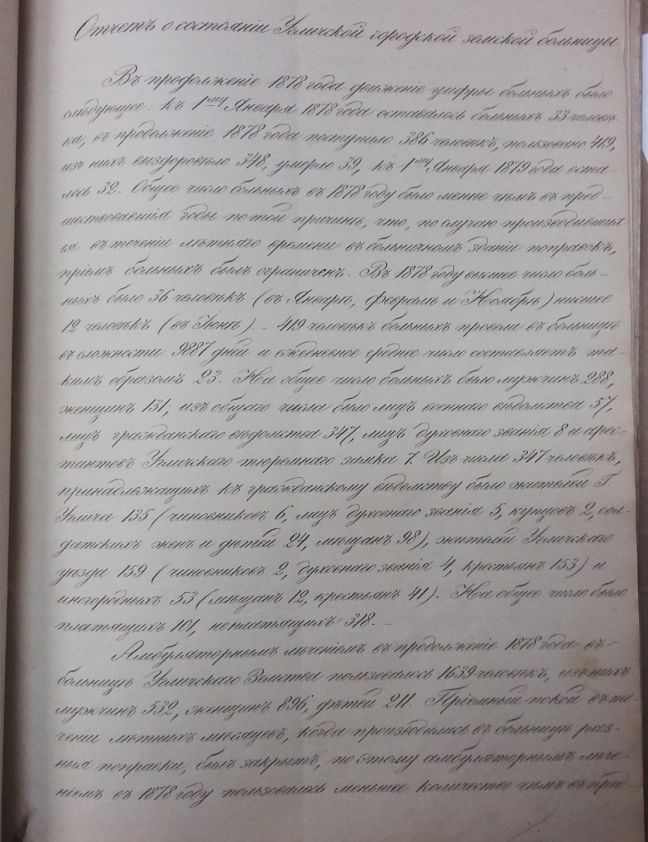 Отчетъ о состоянiи Угличской городской земской больницы
Въ продолженiе 1878 года движенiе цифры больныхъ было
слѣдующее: къ 1му Января 1878 года оставалось больныхъ 33 человѣ-
ка, въ продолженiе 1878 года поступило 386 человѣкъ, пользовано 419,
изъ нихъ выздоровѣло 348, умерло 39, къ 1му Января 1879 года оста-
лось 32. Общее число больныхъ въ 1878 году было менѣе чѣмъ въ пред-
шествовавшiя годы по той причинѣ, что, по случаю производивших
ся въ теченiи лѣтняго времени въ больничномъ зданiи поправокъ,
прiемъ больныхъ былъ ограниченъ. Въ 1878 году высшее число боль-
ныхъ было 36 человѣкъ (въ Январѣ, февралѣ и Ноябрѣ) низшее
12 человѣкъ (въ Iюнѣ). - 419 человѣкъ больныхъ провели въ больницѣ
въ сложности 9887 дней и ежедневное среднее число составляетъ та-
кимъ образомъ 23. На общее число больныхъ было мужчинъ 288,
женщинъ 131, изъ общаго числа было лицъ военнаго вѣдомства 57,
лицъ гражданскаго вѣдомства 347, лицъ духовнаго званiя 8 и арес-
тантовъ Угличскаго тюремнаго замка 7. Изъ числа 347 человѣкъ,
принадлежащихъ къ гражданскому вѣдомству было жителей Г.
Углича 135 (чиновниковъ 6, лицъ духовнаго званiя 5, купцовъ 2, сол-
датскихъ женъ и дѣтей 24, мѣщанъ 98), жителей Угличскаго
уѣзда 159 (чиновниковъ 2, духовнаго званiя 4, крестьянъ 153) и
иногородныхъ 53 (мѣщанъ 12, крестьянъ 41). На общее число было
платящихъ 101, неплатящихъ 318. -
Амбулаторнымъ лѣченiемъ въ продолженiе 1878 года въ
больницѣ Угличскаго Земства пользовалось 1639 человѣкъ, изъ нихъ
мужчинъ 532, женщинъ 896, дѣтей 211. Прiемный покой въ те-
ченiи лѣтнихъ мѣсяцевъ, когда производились въ больницѣ раз-
ныя поправки, былъ закрытъ, по этому амбулаторнымъ лѣче-
нiемъ въ 1878 году пользовалось меньшее количество чѣмъ въ пред-